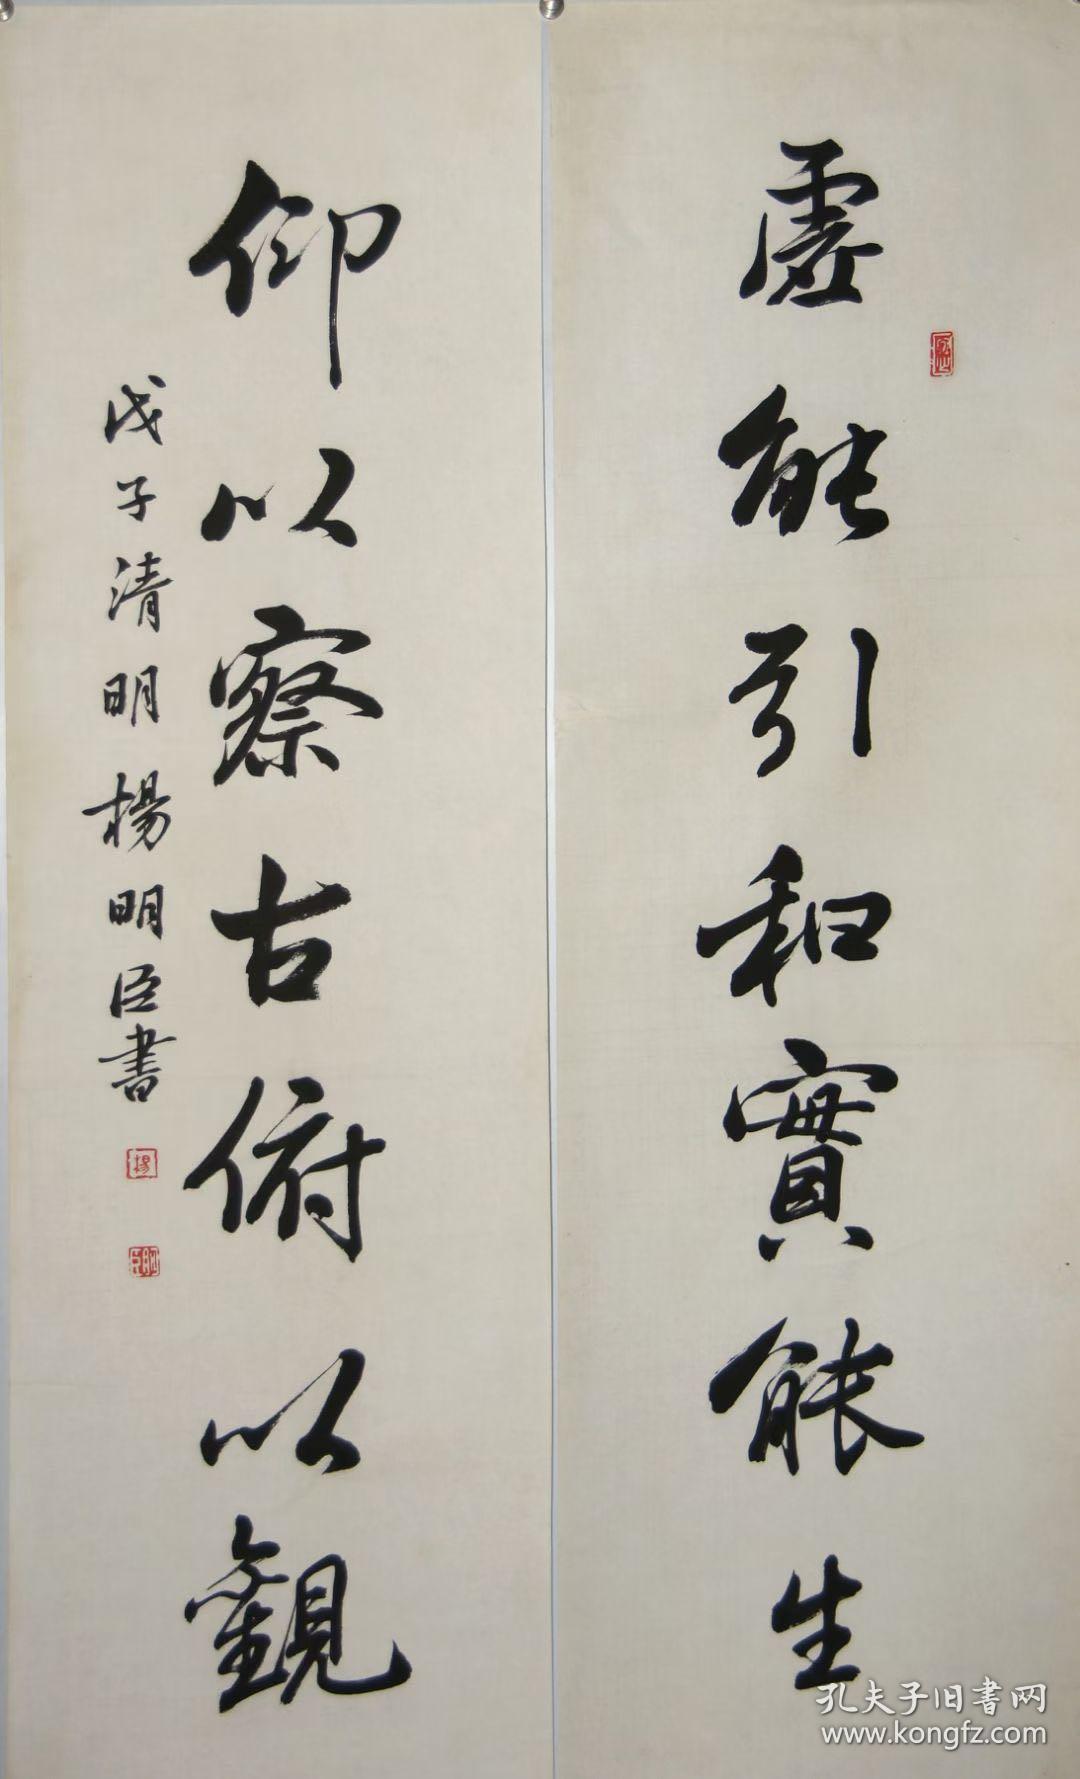 虛能引和實能生
仰以察古俯以觀
戊子清明楊明臣書
楊
孔夫子旧書网
www.kongfz.com